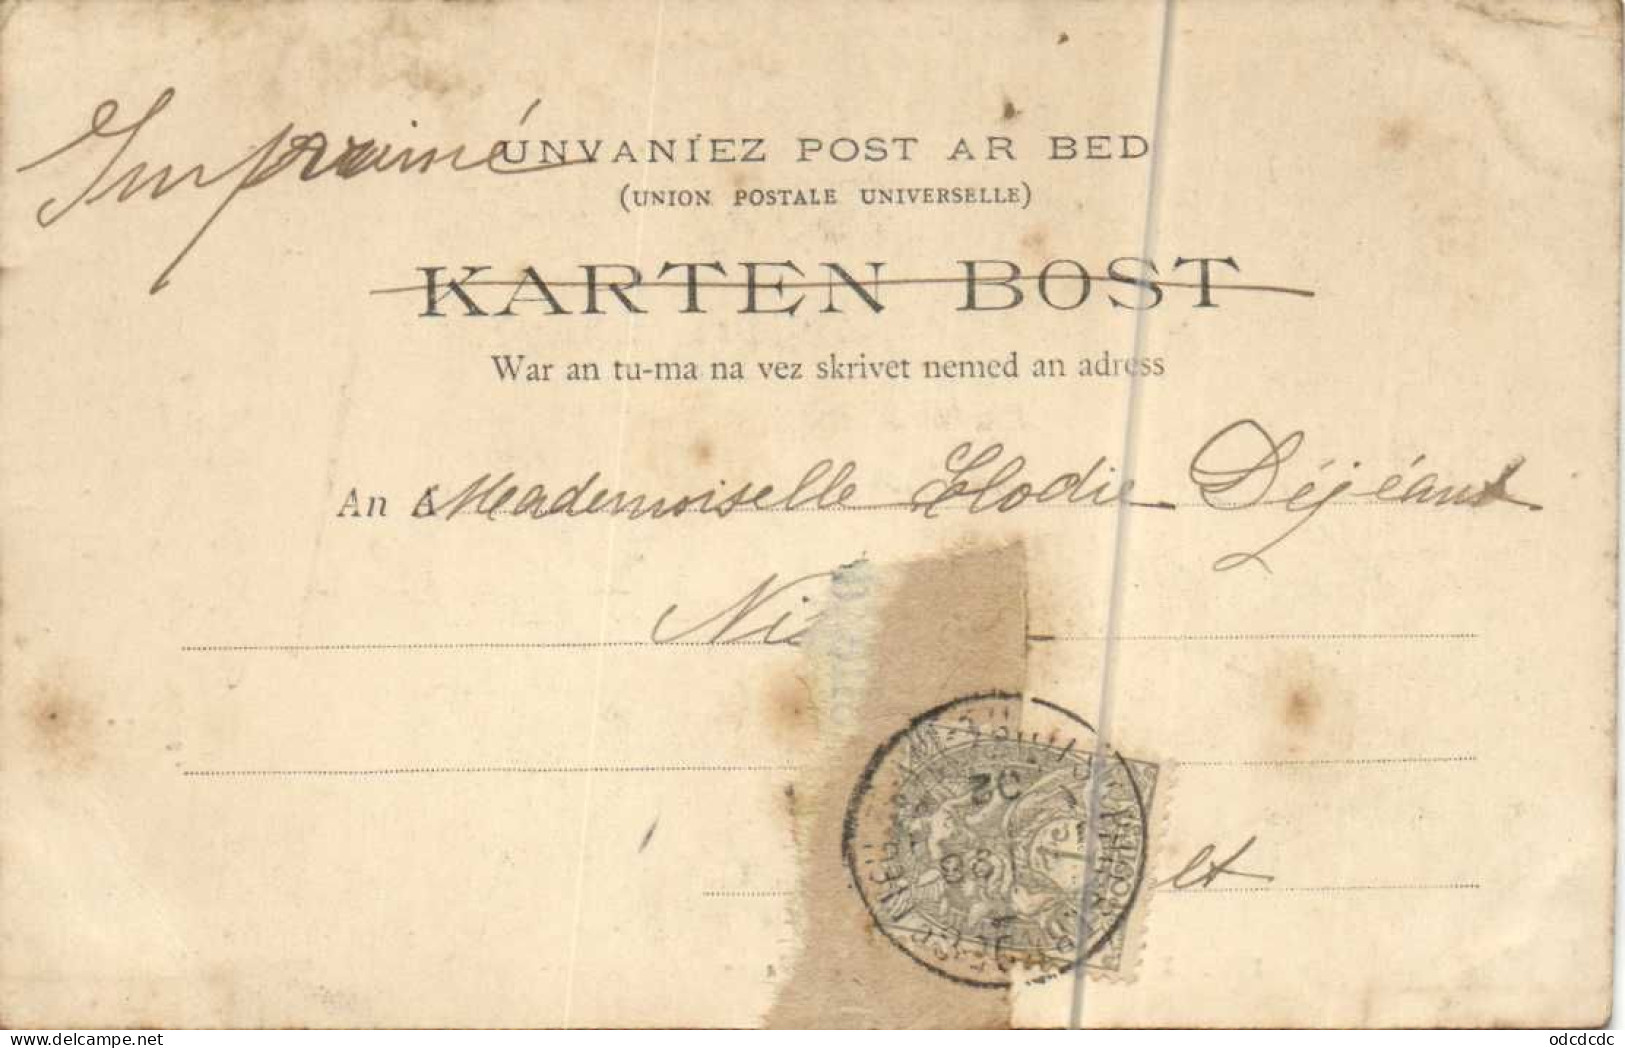 Imprimé
UNVANIEZ POST AR BED
(UNION POSTALE UNIVERSELLE)
KARTEN BOST
War an tu-ma na vez skrivet nemed an adress
An A Mademoiselle Elodie Déjéant
Ni
et
02
odcdcdc